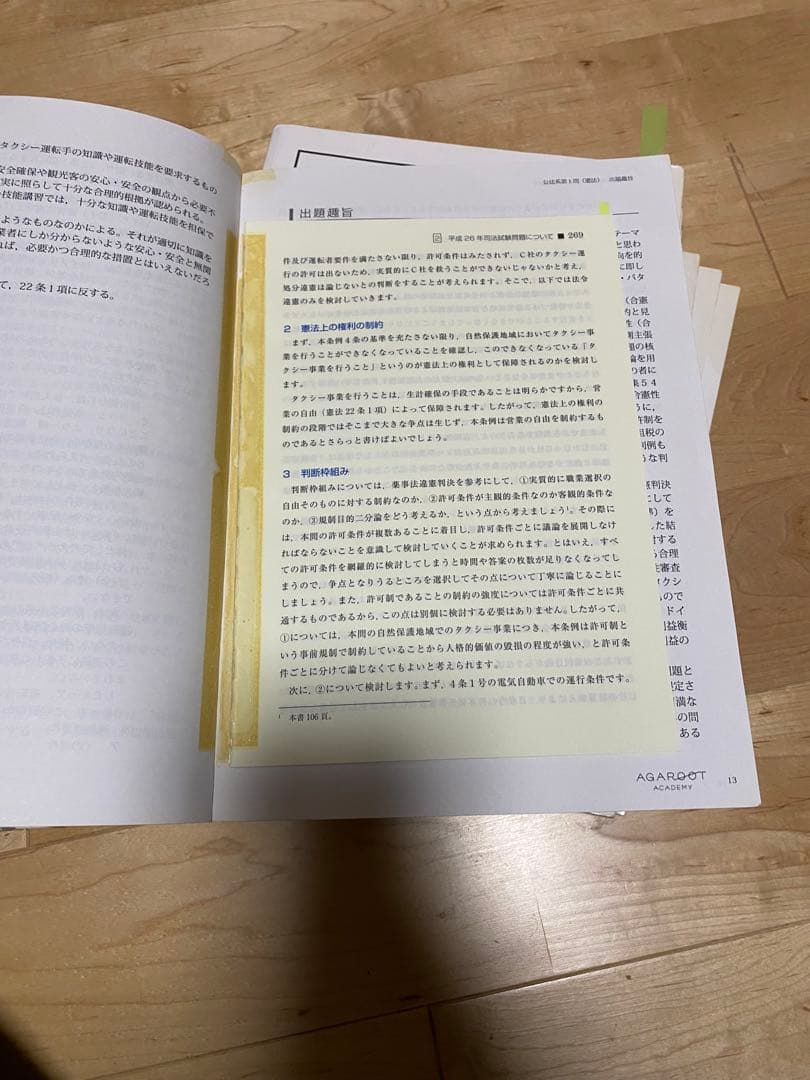 タクシー運転手の知識や運転技能を要求するもの
安全確保や観光客の安心・安全の観点から必要不
実に照らして十分な合理的根拠が認められる。
技能講習では，十分な知識や運転技能を担保で
ようなものなのかによる。それが適切に知識を
業者にしか分からないような安心・安全と無関
れば，必要かつ合理的な措置とはいえないだろ
て，22条1項に反する。
公法系第1問（憲法） 出題趣旨
出題趣旨
2 平成26年司法試験問題について ■ 269
件及び運転者要件を満たさない限り，許可条件はみたされず，C社のタクシー運
行の許可は出ないため，実質的にC社を救うことができないじゃないかと考え，
処分違憲は論じないとの判断をすることが考えられます。そこで，以下では法令
違憲のみを検討していきます。
2 憲法上の権利の制約
まず，本条例4条の基準を充たさない限り，自然保護地域においてタクシー事
業を行うことができなくなっていることを確認し，このできなくなっている「タ
クシー事業を行うこと」というのが憲法上の権利として保障されるのかを検討し
ます。
タクシー事業を行うことは，生計確保の手段であることは明らかですから，営
業の自由（憲法22条1項）によって保障されます。したがって，憲法上の権利の
制約の段階ではそこまで大きな争点は生じず，本条例は営業の自由を制約するも
のであるとさらっと書けばよいでしょう。
3 判断枠組み
判断枠組みについては，薬事法違憲判決を参考にして，①実質的に職業選択の
自由そのものに対する制約なのか，②許可条件が主観的条件なのか客観的条件な
のか，③規制目的二分論をどう考えるか，という点から考えましょう1。その際に
は，本問の許可条件が複数あることに着目し，許可条件ごとに議論を展開しなけ
ればならないことを意識して検討していくことが求められます。とはいえ，すべ
ての許可条件を網羅的に検討してしまうと時間や答案の枚数が足りなくなってし
まうので，争点となりうるところを選択してその点について丁寧に論じることに
しましょう。また，許可制であることの制約の強度については許可条件ごとに共
通するものであるから，この点は別個に検討する必要はありません。したがって，
①については，本問の自然保護地域でのタクシー事業につき，本条例は許可制と
いう事前規制で制約していることから人格的価値の毀損の程度が強い，と許可条
件ごとに分けて論じなくてもよいと考えられます。
次に，②について検討します。まず，4条1号の電気自動車での運行条件です。
1 本書106頁。
テーマ
と思わ
向的を
に即し
・パタ
（合憲
的と見
性（合
則主張
題の核
論を用
の者に
集54
合憲性
うに，
許制を
租税の
判例も
うな判
憲判決
にして
を
した結
討する
ら合理
性審査
タクシ
もので
ドイ
利益衡
利益の
問題と
規定さ
満な
の間
ある
AGAROOT
ACADEMY
13